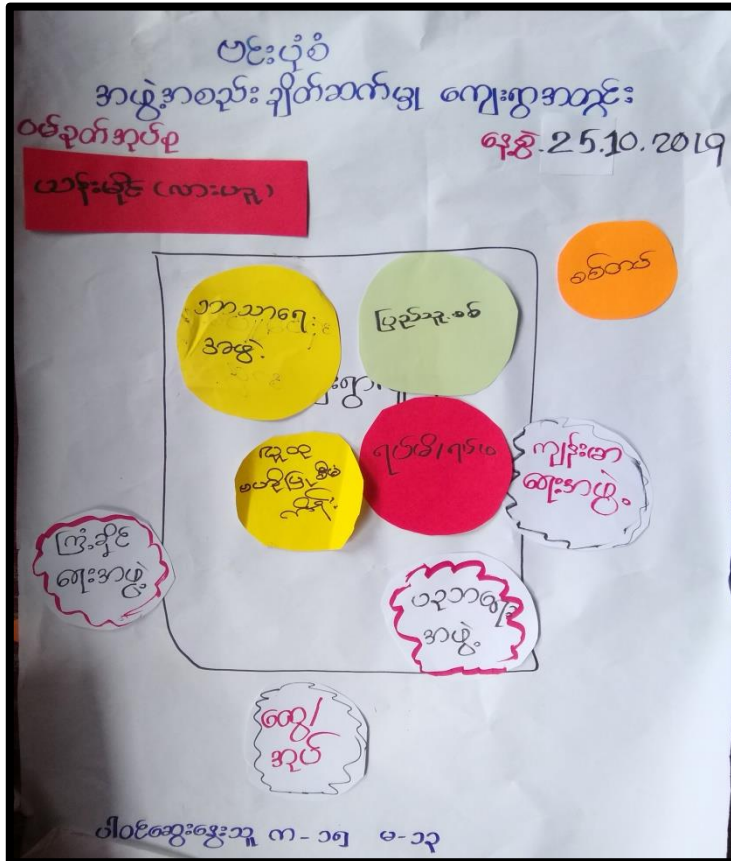 ဗင်းပုံစံ
အဖွဲ့အစည်း ချိတ်ဆက်မှု ကျေးရွာအတွင်း
ဝမ်ခုတ်အုပ်စု
နေ့စွဲ.25.10.2019
ယာန်းမိုင် (လားဟူ)
စစ်တပ်
ဘာသာရေး
အဖွဲ့
ပြည်သူ့စစ်
လူထု
ဗဟိုပြု စီမံ
ကိန်း
ရပ်မိ/ရပ်ဖ
ကျန်းမာ
ရေးအဖွဲ့
ကြံ့ခိုင်
ရေးအဖွဲ့
ပညာရေး
အဖွဲ့
ထွေ/
အုပ်
ပါဝင်ဆွေးနွေးသူ က - ၁၅ မ - ၁၃